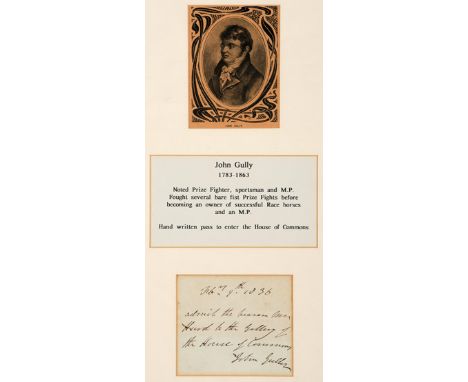 JOHN GULLY
John Gully
1783-1863
Noted Prize Fighter, sportsman and M.P.
Fought several bare fist Prize Fights before
becoming an owner of successful Race horses
and an M.P.
Hand written pass to enter the House of Commons
Feby 9th 1836
admit the bearer
to the Gallery of
the House of Commons
John Gully